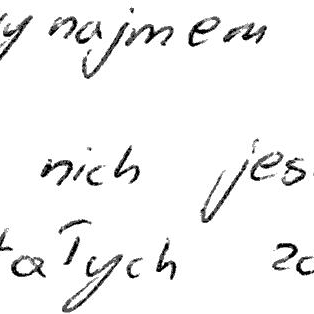 najmem
nich jes
tałych